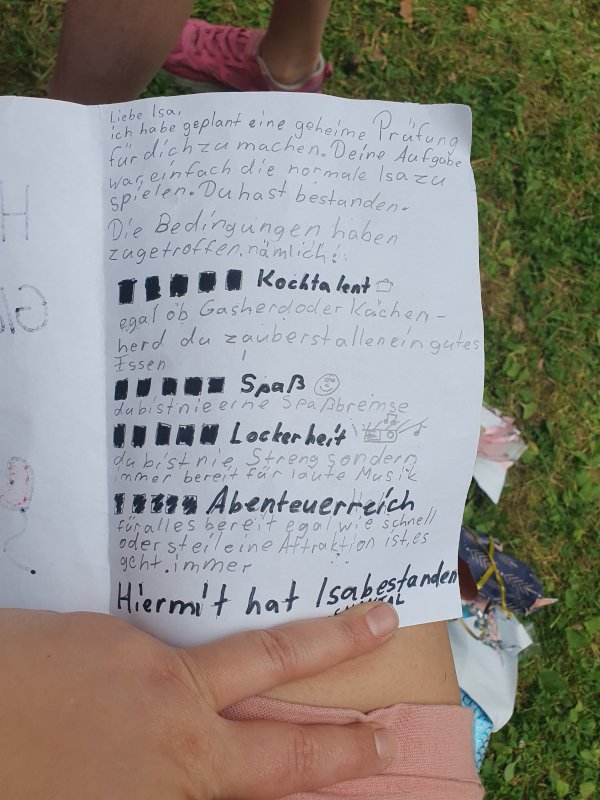 Liebe Isa,
ich habe geplant eine geheime Prüfung
für dich zu machen. Deine Aufgabe
war, einfach die normale Isa zu
spielen. Du hast bestanden.
Die Bedingungen haben
zugetroffen, nämlich:
Kochtalent
egal ob Gasherd oder Kächen-
herd du zauberst allen ein gutes
Essen
Spaß
du bist nie erne Spaßbremse
Lockerheit
du bist nie Streng sondern
immer bereit für laute Musik
Abenteuerreich
für alles bereit egal wie schnell
oder steil eine Attraktion ist, es
geht immer
Hiermit hat Isa bestanden